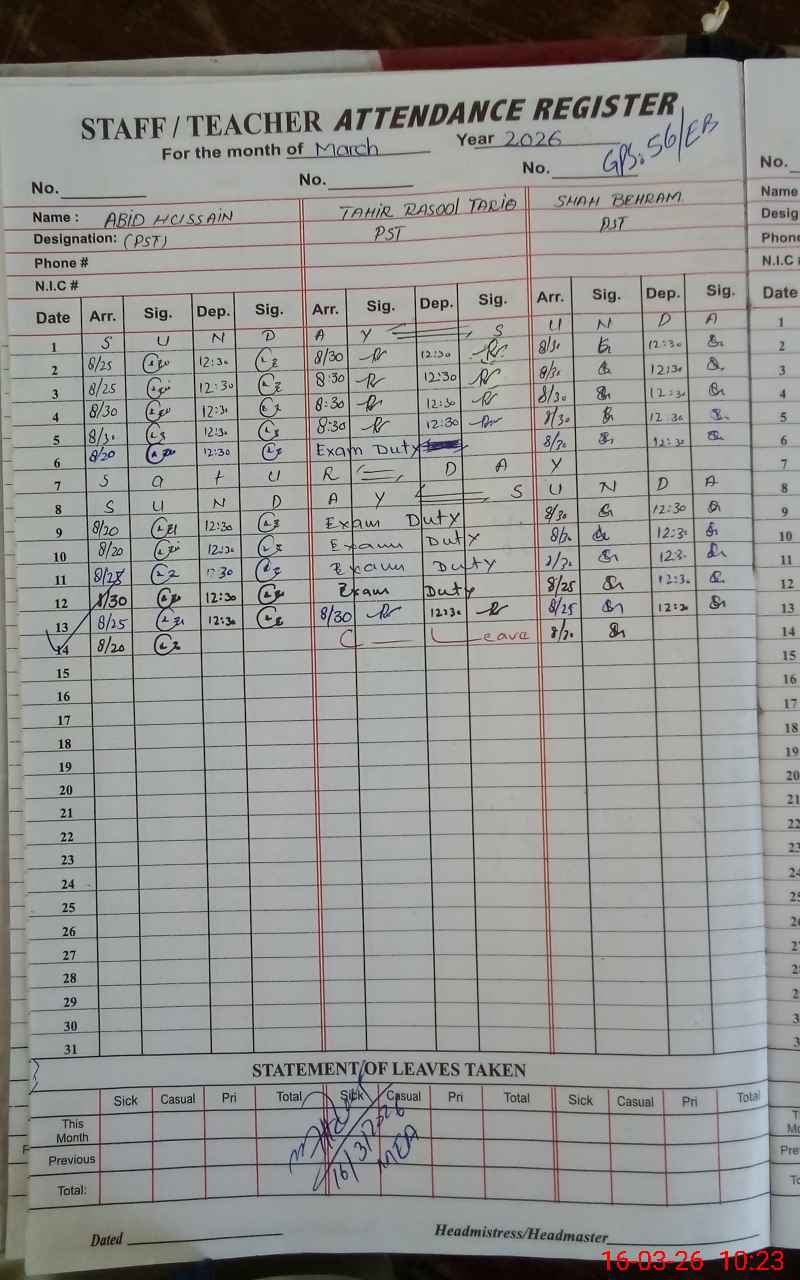 STAFF / TEACHER ATTENDANCE REGISTER
For the month of March Year 2026
GPS. 56/EB
No. No. No.
Name : ABID HUSSAIN TAHIR RASOOL TARIQ SHAH BEHRAM
Designation: (PST) PST PST
Phone #
N.I.C #
Date Arr. Sig. Dep. Sig. Arr. Sig. Dep. Sig. Arr. Sig. Dep. Sig.
1 S U N D A Y S U N D A
2 8/25 12:30 8/30 12:30 8/30 12:30
3 8/25 12:30 8:30 12:30 8/30 12:30
4 8/30 12:30 8:30 12:30 8/30 12:30
5 8/30 12:30 8:30 12:30 8/30 12:30
6 8/20 12:30 Exam Duty 8/20 12:30
7 S a t U R D A Y
8 S U N D A Y S U N D A
9 8/20 12:30 Exam Duty 8/30 12:30
10 8/20 12:30 Exam Duty 12:30
11 12:30 Exam Duty 12:30
12 8/30 12:30 Exam Duty 8/25 12:30
13 8/25 12:30 8/30 12:30 8/25 12:30
14 8/20 C Leave
15
16
17
18
19
20
21
22
23
24
25
26
27
28
29
30
31
STATEMENT OF LEAVES TAKEN
Sick Casual Pri Total Sick Casual Pri Total Sick Casual Pri Total
This Month
Previous
Total:
16/3/2026
MEA
Dated Headmistress/Headmaster
No.
Name
Desig
Phone
N.I.C
Date
1
2
3
4
5
6
7
8
9
10
11
12
13
14
15
16
17
18
19
20
21
22
16-03-26 10:23